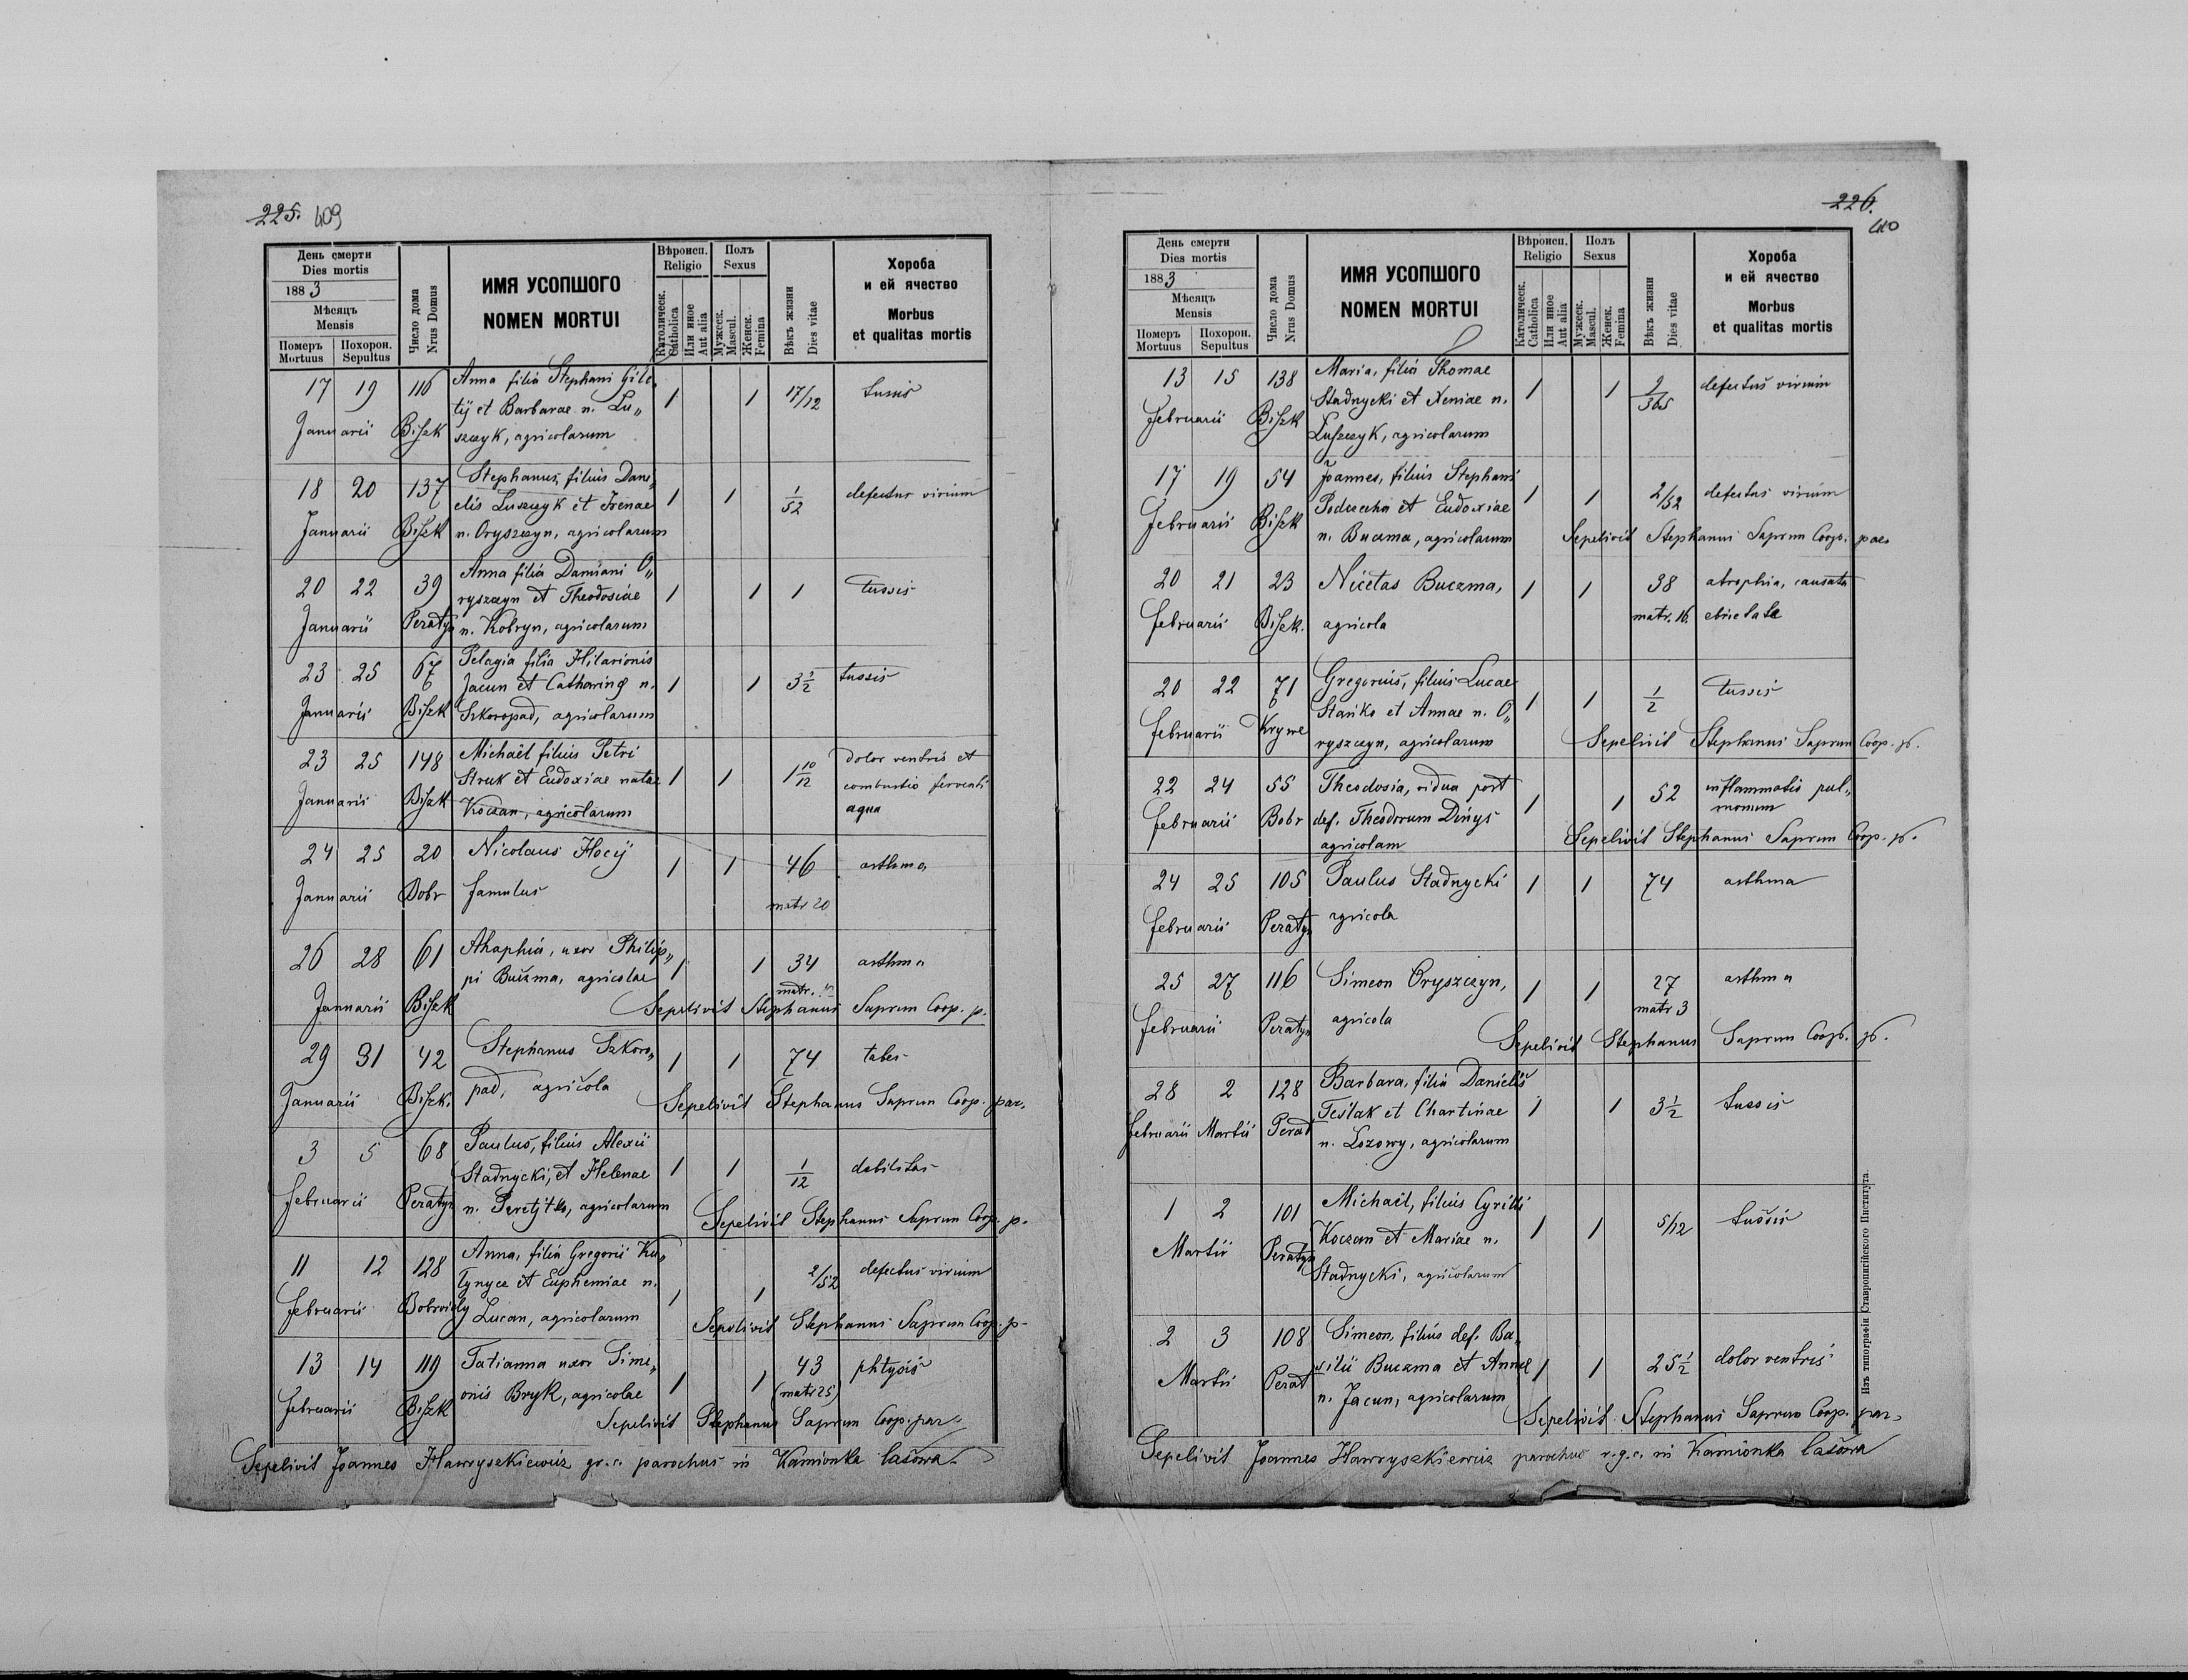 225. 409
День смерти
Dies mortis
1883
Мѣсяцъ
Mensis
Померъ Mortuus
Похорон. Sepultus
Число дома
Nrus Domus
ИМЯ УСОПШОГО
NOMEN MORTUI
Вѣроисп.
Religio
Католическ.
Catholica
Или иное
Aut alia
Полъ
Sexus
Мужеск.
Mascul.
Женск.
Femina
Вѣкъ жизни
Dies vitae
Хороба
и ей ячество
Morbus
et qualitas mortis
17 19 116 Anna filia Stephani Gilc„
tij et Barbarae n. Lu„ 1 1 17/12 tussis
Januarii Biszk szczyk, agricolarum
18 20 137 Stephanus, filius Dani„
elis Luszczyk et Irenae 1 1 1/52 defectus virium
Januarii Biszk n. Oryszczyn, agricolarum
20 22 39 Anna filia Damiani O„
ryszczyn et Theodosiae 1 1 1 tussis
Januarii Peratyn n. Kobryn, agricolarum
23 25 67 Pelagia filia Hilarionis
Jacun et Catharinę n. 1 1 3½ tussis
Januarii Biszk Szkoropad, agricolarum
23 25 148 Michaël filius Petri
Struk et Eudoxiae natae 1 1 1 10/12 dolor ventris et
combustio ferventi
Januarii Biszk Koczan, agricolarum aqua
24 25 20 Nicolaus Hocij 1 1 46 asthma
Januarii Bobr famulus matr 20
26 28 61 Ahaphia, uxor Philip„
pi Buczma, agricolae 1 1 34 asthma
matr.
Januarii Biszk Sepelivit Stephanus Saprun Coop. p.
29 31 42 Stephanus Szkoro„ 1 1 74 tabes
Januarii Biszk. pad, agricola
Sepelivit Stephanus Saprun Coop. par.
3 5 68 Paulus, filius Alexii
Stadnycki, et Helenae 1 1 1/12 debilitas
Februarii Peratyn n. Peretjtko, agricolarum
Sepelivit Stephanus Saprun Coop. p.
11 12 128 Anna, filia Gregorii Ku„
tynycz et Euphemiae n. 1 1 2/52 defectus virium
Februarii Bobroidy Lucan, agricolarum
Sepelivit Stephanus Saprun Coop. p.
13 14 119 Tatianna uxor Sime„
onis Bryk, agricolae 1 1 43 phtysis
(matr 25)
Februarii Biszk
Sepelivit Stephanus Saprun Coop. par.
Sepelivit Joannes Hawryszkiewicz gr. c. parochus in Kamionka łasowa.
226.
410
День смерти
Dies mortis
1883
Мѣсяцъ
Mensis
Померъ Mortuus
Похорон. Sepultus
Число дома
Nrus Domus
ИМЯ УСОПШОГО
NOMEN MORTUI
Вѣроисп.
Religio
Католическ.
Catholica
Или иное
Aut alia
Полъ
Sexus
Мужеск.
Mascul.
Женск.
Femina
Вѣкъ жизни
Dies vitae
Хороба
и ей ячество
Morbus
et qualitas mortis
13 15 138 Maria, filia Thomae
Stadnycki et Xeniae n. 1 1 2/365 defectus virium
Februarii Biszk Luszczyk, agricolarum
17 19 54 Joannes, filius Stephani
Poducha et Eudoxiae 1 1 2/52 defectus virium
Februarii Biszk n. Buczma, agricolarum
Sepelivit Stephanus Saprun Coop. par.
20 21 23 Nicetas Buczma, 1 1 38 atrophia, causata
Februarii Biszk. agricola matr. 16. ebrietate
20 22 71 Gregorius, filius Lucae
Stańko et Annae n. O„ 1 1 1/2 tussis
Februarii Krywe ryszczyn, agricolarum
Sepelivit Stephanus Saprun Coop. p.
22 24 55 Theodosia, vidua post 1 1 52 inflammatio pul„
monum
Februarii Bobr def. Theodorum Dinys
agricolam
Sepelivit Stephanus Saprun Coop. p.
24 25 105 Paulus Stadnycki 1 1 74 asthma
Februarii Peratyn agricola
25 27 116 Simeon Oryszczyn, 1 1 27 asthma
matr 3
Februarii Peratyn agricola
Sepelivit Stephanus Saprun Coop. p.
28 2 128 Barbara, filia Danielis
Teslak et Chartinae 1 1 3½ tussis
Februarii Martii Perat n. Lozowy, agricolarum
1 2 101 Michaël, filius Cyrilli
Koczan et Mariae n. 1 1 5/12 tussis
Martii Peratyn Stadnycki, agricolarum
2 3 108 Simeon, filius def. Ba„
silii Buczma et Annae 1 1 25½ dolor ventris
Martii Perat n. Jacun, agricolarum
Sepelivit Stephanus Saprun Coop. par.
Sepelivit Joannes Hawryszkiewicz parochus r. g. c. in Kamionka łasowa
Изъ типографіи Ставропигійского Института.